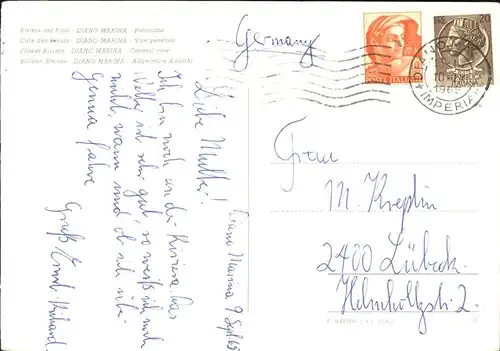 Riviera dei Fiori - DIANO MARINA - Panorama
Côte des Fleurs - DIANO MARINA - Vue générale
Flower Riviera - DIANO MARINA - General view
Blumen Riviera - DIANO MARINA - Allgemeine Ansicht
Germany
POSTE ITALIANE
20
DIANO
10
1965
IMPERIA
Diano Marina 9 Sept 65
Liebe Mutter!
Ich bin noch an der Riviera. Das
Wetter ist sehr gut, so weiß ich noch
nicht, wann und ob ich über
Genua fahre
Gruß Ernst-Richard.
Frau
M. Kreplin
2400 Lübeck
Helmholtzstr. 2.